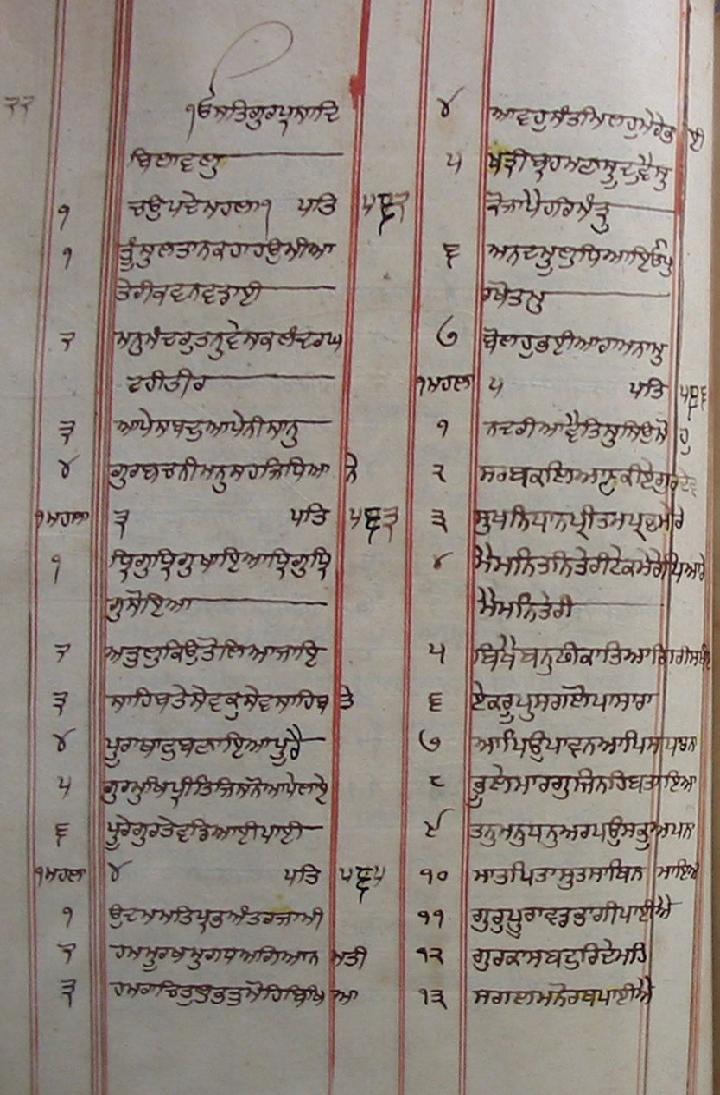 ੨੨
੧ਓੁ ਸਤਿਗੁਰਪ੍ਰਸਾਦਿ
ਬਿਲਾਵਲੁ
੧ ਚਉਪਦੇਮਹਲਾ੧ ਪਤਿ ੫੬੨
੧ ਤੂੰਸੁਲਤਾਨਕਹਾਹਉਮੀਆ
ਤੇਰੀਕਵਨਵਡਾਈ
੨ ਮਨੁਮੰਦਰੁਤਨੁਵੇਸਕਲੰਦਰਘ
ਟਹੀਤੀਰ
੩ ਆਪੇਸਬਦੁਆਪੇਨੀਸਾਨੁ
੪ ਗੁਰਬਚਨੀਮਨੁਸਹਜਿਧਿਆ ਨੇ
੧ਮਹਲਾ ੩ ਪਤਿ ੫੬੩
੧ ਧ੍ਰਿਗੁਧ੍ਰਿਗੁਖਾਇਆਧ੍ਰਿਗੁਧ੍ਰਿ
ਗੁਸੋਇਆ
੨ ਅਤੁਲੁਕਿਉਤੋਲਿਆਜਾਇ
੩ ਸਾਹਿਬਤੇਸੇਵਕੁਸੇਵਸਾਹਿਬ ਤੇ
੪ ਪੂਰਾਥਾਟੁਬਣਾਇਆਪੂਰੈ
੫ ਗੁਰਮੁਖਿਪ੍ਰੀਤਿਜਿਸਨੋਆਪੇਲਾਏ
੬ ਪੂਰੇਗੁਰਤੇਵਡਿਆਈਪਾਈ
੧ਮਹਲਾ ੪ ਪਤਿ ੫੬੫
੧ ਉਦਮਮਤਿਪ੍ਰਭਅੰਤਰਜਾਮੀ
੨ ਹਮਮੂਰਖਮੁਗਧਅਗਿਆਨ ਮਤੀ
੩ ਹਮਰਾਚਿਤੁਲੁਭਤੁਮੋਹਿਬਿਖਿ ਆ
੪ ਆਵਹੁਸੰਤਮਿਲਹੁਮੇਰੇਭਾ ਈ
੫ ਖਤ੍ਰੀਬ੍ਰਹਮਣੁਸੂਦੁਵੈਸੁ
ਕੋਜਾਪੈਹਰਿਮੰਤ੍ਰੁ
੬ ਅਨਦਮੂਲੁਧਿਆਇਓਪੁ
ਰਖੋਤਮੁ
੭ ਬੋਲਹੁਭਈਆਰਾਮਨਾਮੁ
੧ਮਹਲਾ ੫ ਪਤਿ ੫੬੬
੧ ਨਦਰੀਆਵੈਤਿਸੁਸਿਉਮੋ ਹੁ
੨ ਸਰਬਕਲਿਆਣਕੀਏਗੁਰਦੇਵ
੩ ਸੁਖਨਿਧਾਨਪ੍ਰੀਤਮਪ੍ਰਭਮੇਰੇ
੪ ਮੈਮਨਿਤਨਿਤੇਰੀਟੇਕਮੇਰੇਪਿਆਰੇ
ਮੈਮਨਿਤੇਰੀ
੫ ਬਿਖੈਬਨੁਫੀਕਾਤਿਆਗਿਰੀਸਖੀਏ
੬ ਏਕਰੂਪੁਸਗਲੋਪਾਸਾਰਾ
੭ ਆਪਿਉਪਾਵਨਆਪਿਸਧਰਨਾ
੮ ਭੂਲੇਮਾਰਗੁਜਿਨਹਿਬਤਾਇਆ
੯ ਤਨੁਮਨੁਧਨੁਅਰਪਉਸਭੁਅਪਨਾ
੧੦ ਮਾਤਪਿਤਾਸੁਤਸਾਥਿਨ ਮਾਇਆ
੧੧ ਗੁਰੁਪੂਰਾਵਡਭਾਗੀਪਾਈਐ
੧੨ ਗੁਰਕਾਸਬਦੁਰਿਦੇਮਹਿ
੧੩ ਸਗਲਮਨੋਰਥਪਾਈਐ